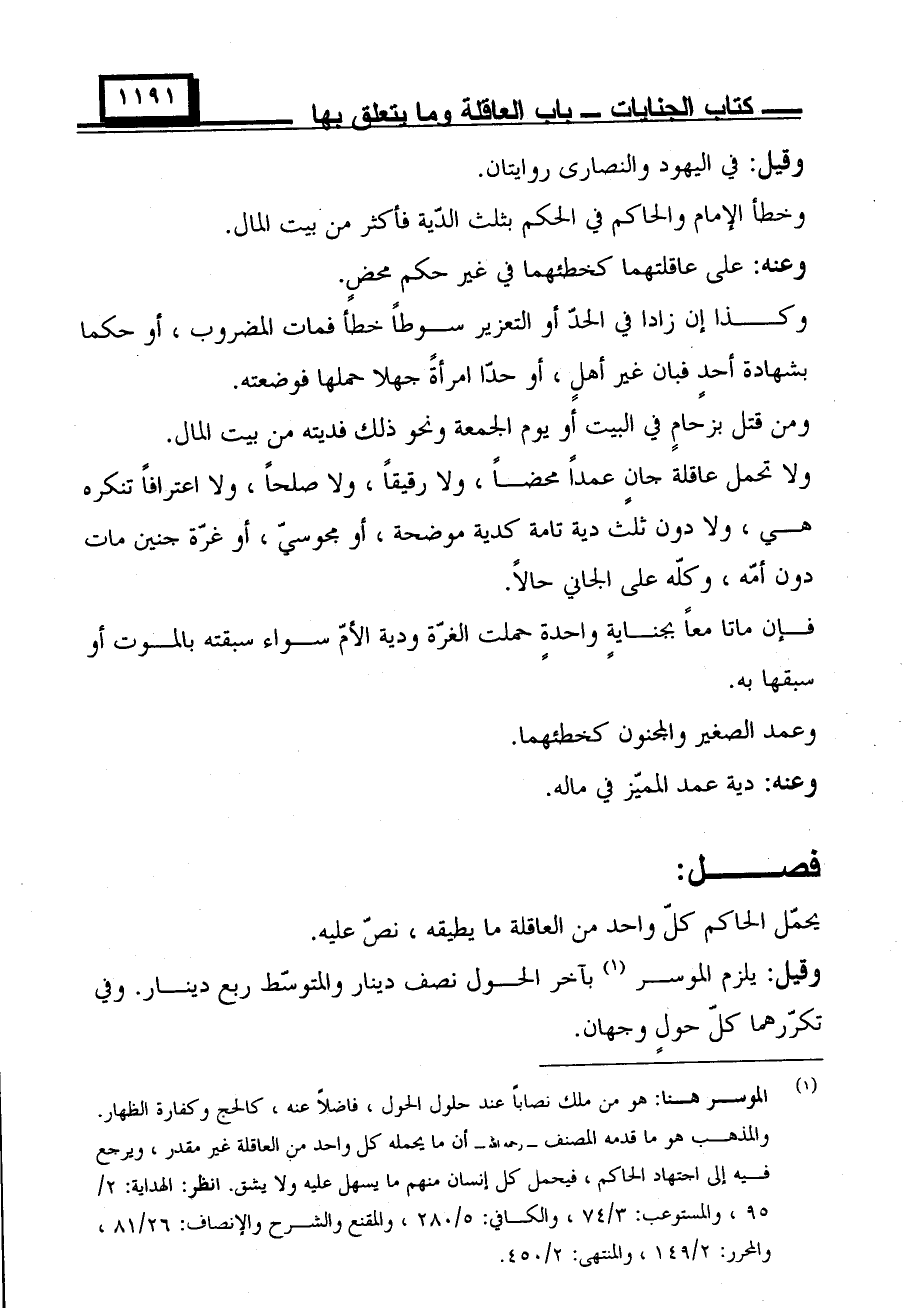 كتاب الجنايات – باب العاقلة وما يتعلق بها
١١٩١
وقيل: في اليهود والنصارى روايتان.
وخطأ الإمام والحاكم في الحكم بثلث الدّية فأكثر من بيت المال.
وعنه: على عاقلتهما كخطئهما في غير حكم محضٍ.
وكـــذا إن زادا في الحدّ أو التعزير سـوطاً خطأ فمات المضروب ، أو حكما
بشهادة أحدٍ فبان غير أهلٍ ، أو حدّا امرأةً جهلا حملها فوضعته.
ومن قتل بزحامٍ في البيت أو يوم الجمعة ونحو ذلك فديته من بيت المال.
ولا تحمل عاقلة جانٍ عمداً محضـاً ، ولا رقيقاً ، ولا صلحاً ، ولا اعترافاً تنكره
هـي ، ولا دون ثلث دية تامة كدية موضحة ، أو مجوسيّ ، أو غرّة جنين مات
دون أمّه ، وكلّه على الجاني حالاً.
فـإن ماتا معاً بجنايةٍ واحدةٍ حملت الغرّة ودية الأمّ سـواء سبقته بالمـوت أو
سبقها به.
وعمد الصغير والمجنون كخطئهما.
وعنه: دية عمد المميّز في ماله.
فصـــــل:
يحمّل الحاكم كلّ واحد من العاقلة ما يطيقه ، نصّ عليه.
وقيل: يلزم الموسـر (١) بآخر الحـول نصف دينار والمتوسّط ربع دينـار. وفي
تكرّرهما كلّ حولٍ وجهان.
(١) الموسـر هـنا: هو من ملك نصاباً عند حلول الحول ، فاضلاً عنه ، كالحج وكفارة الظهار.
والمذهـب هو ما قدمه المصنف – رحمه الله – أن ما يحمله كل واحد من العاقلة غير مقدر ، ويرجع
فـيه إلى اجتهاد الحاكم ، فيحمل كل إنسان منهم ما يسهل عليه ولا يشق. انظر: الهداية: ٢/
٩٥ ، والمستوعب: ٧٤/٣ ، والكـافي: ٢٨٠/٥ ، والمقنع والشرح والإنصاف: ٨١/٢٦ ،
والمحرر: ١٤٩/٢ ، والمنتهى: ٤٥٠/٢.